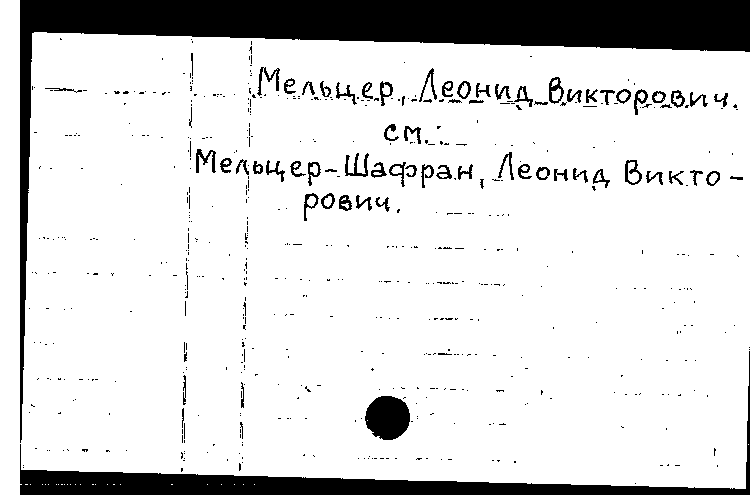 Мельцер, Леонид Викторович.
см.:
Мельцер-Шафран, Леонид Викто-
рович.